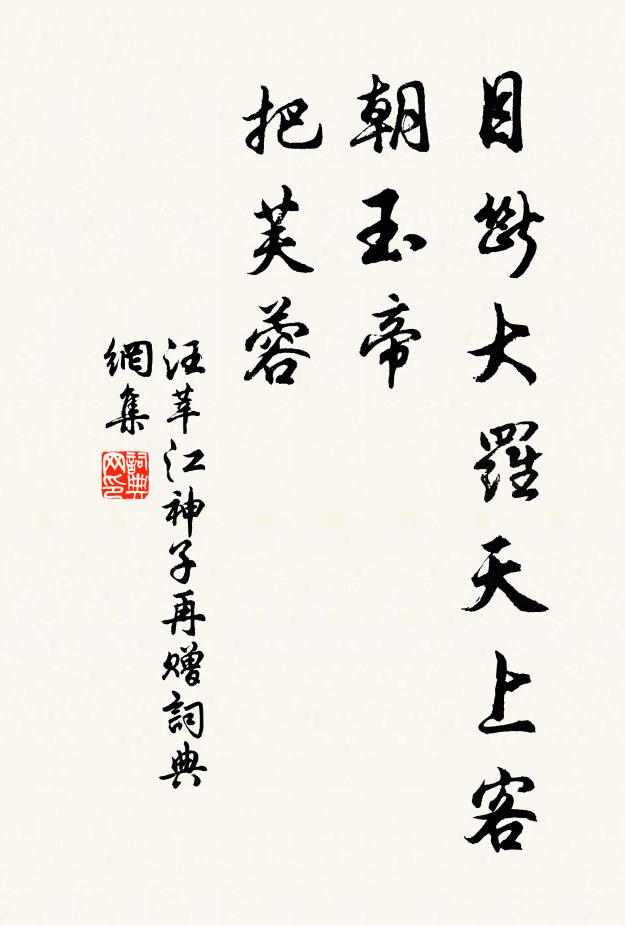 目斷大羅天上客
朝玉帝
把芙蓉
汪莘江神子再贈詞典
網集
詞典網印